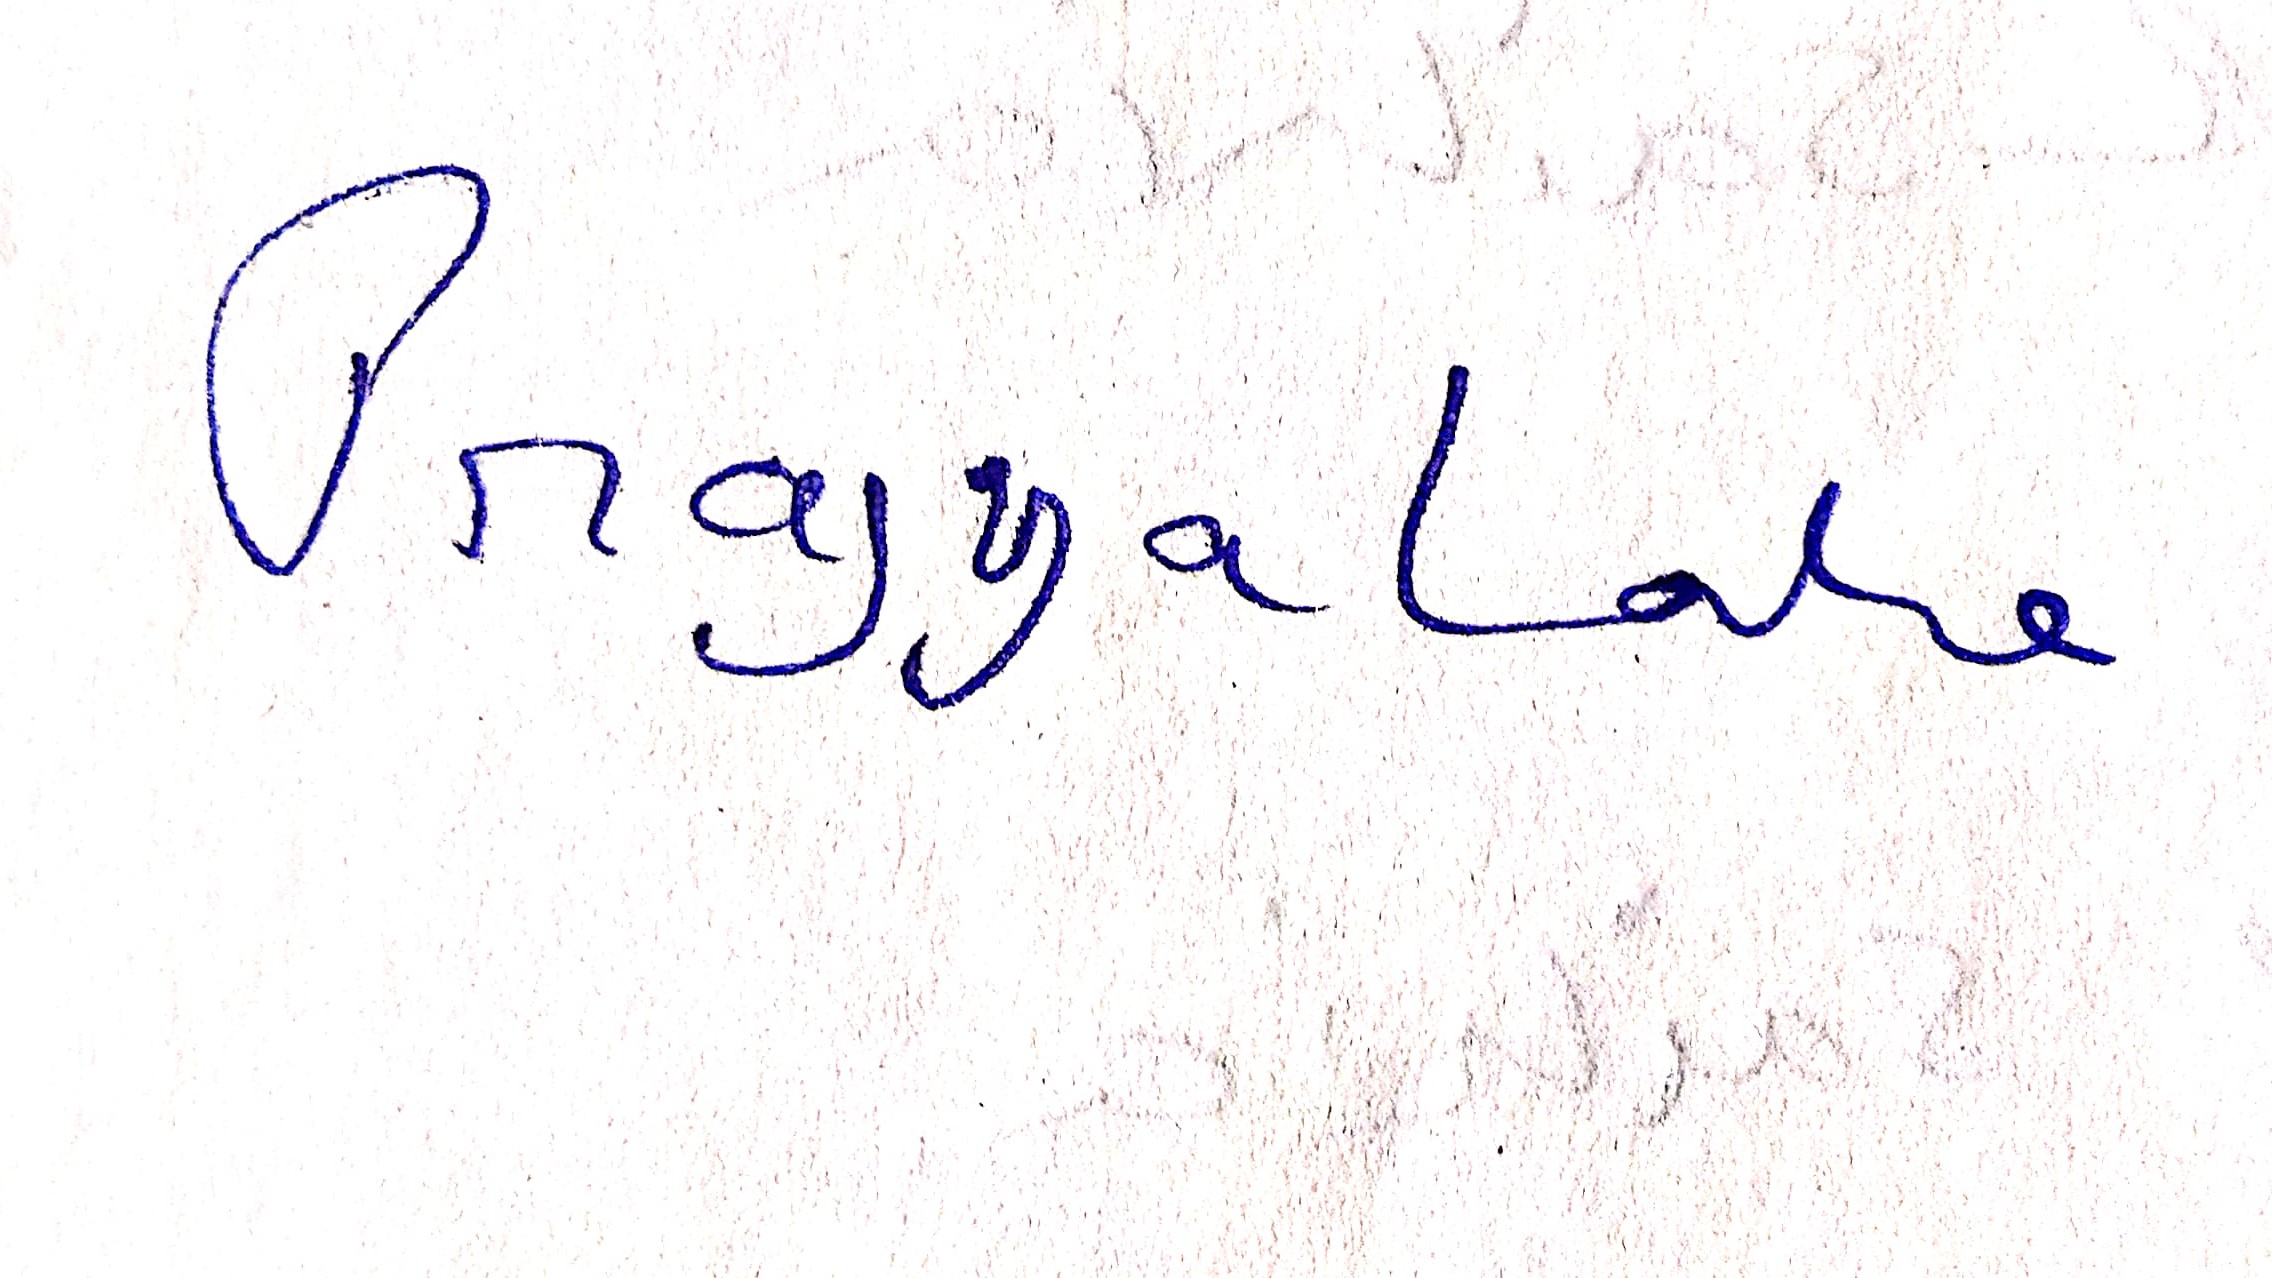 Pragya Lake